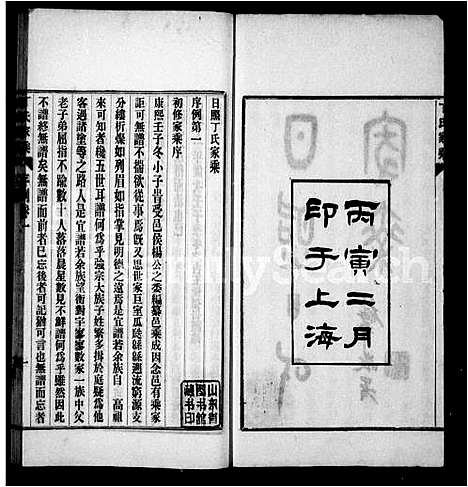 丙寅二月
印于上海
日照丁氏家乘
序例第一
初修家乘序
康熙壬子冬小子嘗受邑侯楊公之委編纂邑乘成因念邑有乘家
詎可無譜不揣欲從事焉旣又思世家巨室瓜瓞緜緜遡流窮源支
分縷析燦如列眉如指掌見明德之遠焉是宜譜若余族自 高祖
來可知者纔五世耳譜何爲乎強宗大族子姓繁多揖於庭疑爲
客遇諸塗等之路人是宜譜若余族望衡對宇寥寥數家一族中父
老子弟屈指不踰數十人落落晨星數見不鮮譜何爲乎雖然因此
不譜終無譜矣無譜而前者已忘後者可記猶可言也無譜而忘者
山東省
圖書館
藏書印